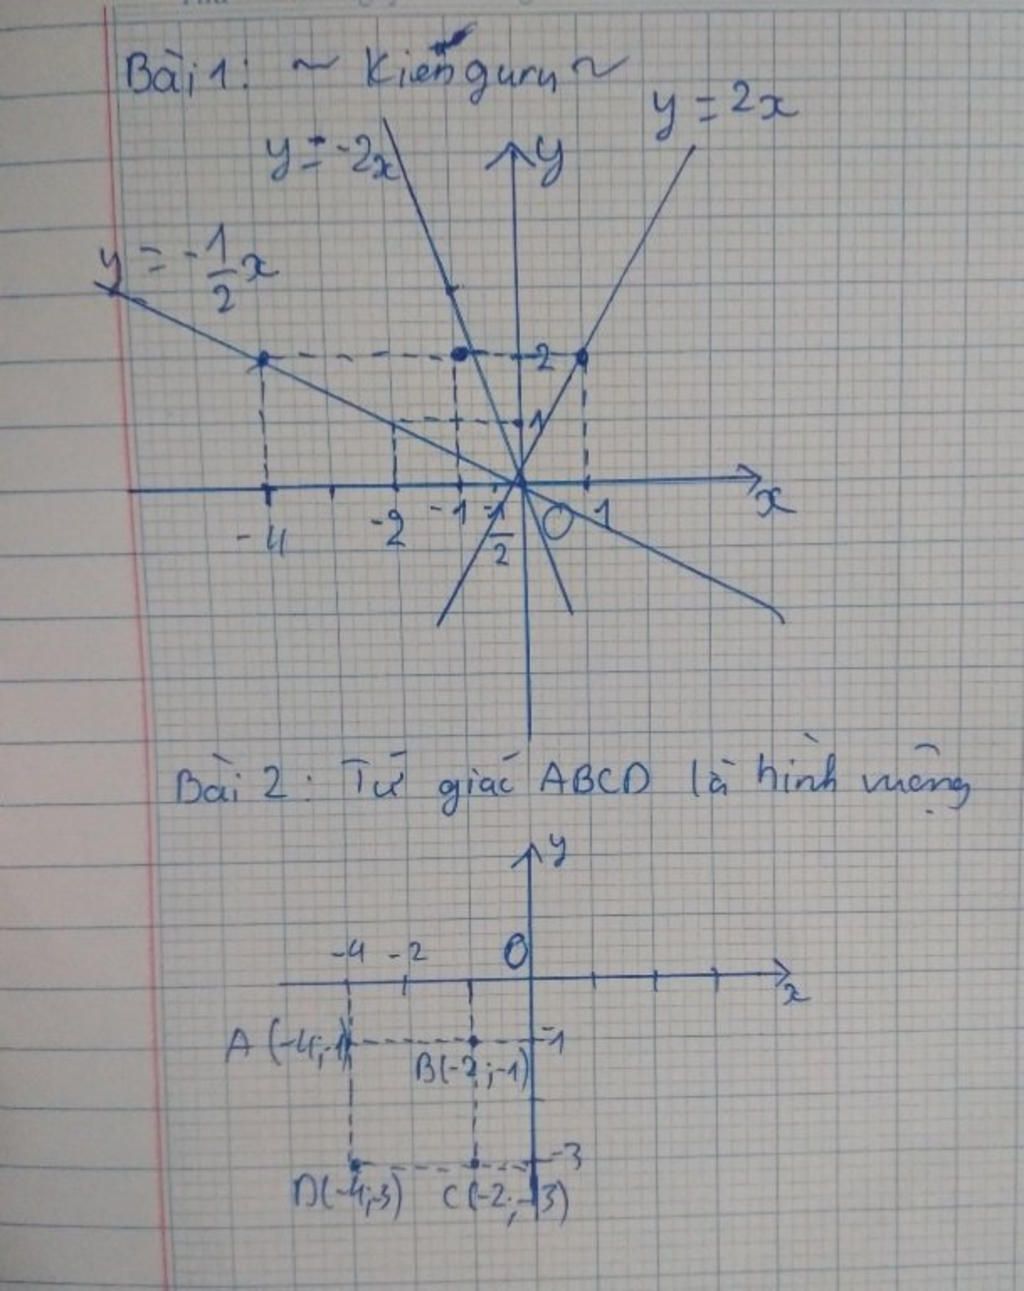 Bài 1: ~ Kiến guru ~
y = 2x
y = -2x
y
y = -1/2 x
2
1
x
-4 -2 -1 -1/2 O 1
Bài 2: Tứ giác ABCD là hình vuông
y
-4 -2 O
x
A (-4;-1) -1
B(-2;-1)
-3
D(-4;-3) C(-2;-3)